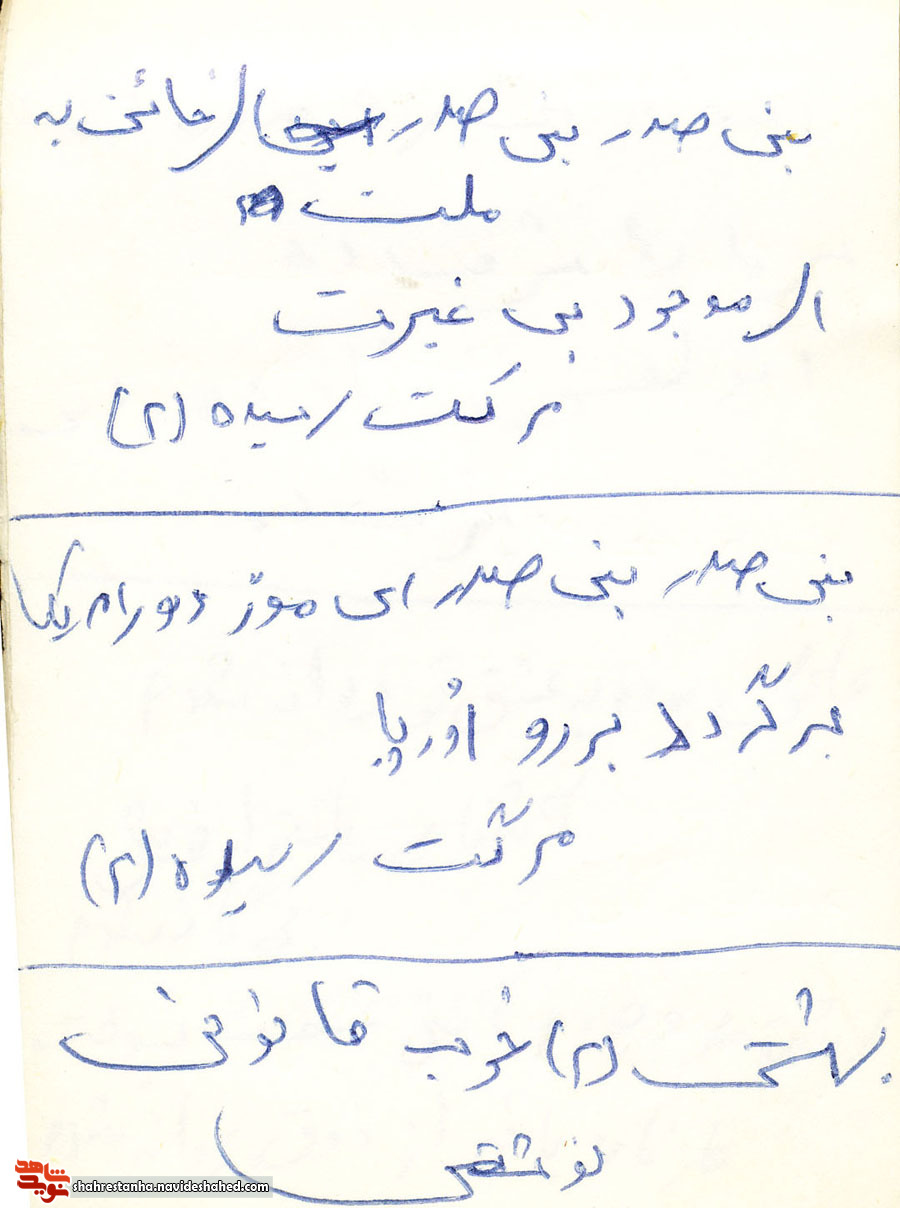 بنی صدر بنی صدر ای خائن به
ملت
ای موجود بی غیرت
مرگت رسیده (۲)
بنی صدر بنی صدر ای مزدور امریکا
برگرد برو اروپا
مرگت رسیده (۲)
بهشتی (۲) خوب قانونی
نوشتی
shahrestanha.navideshahed.com